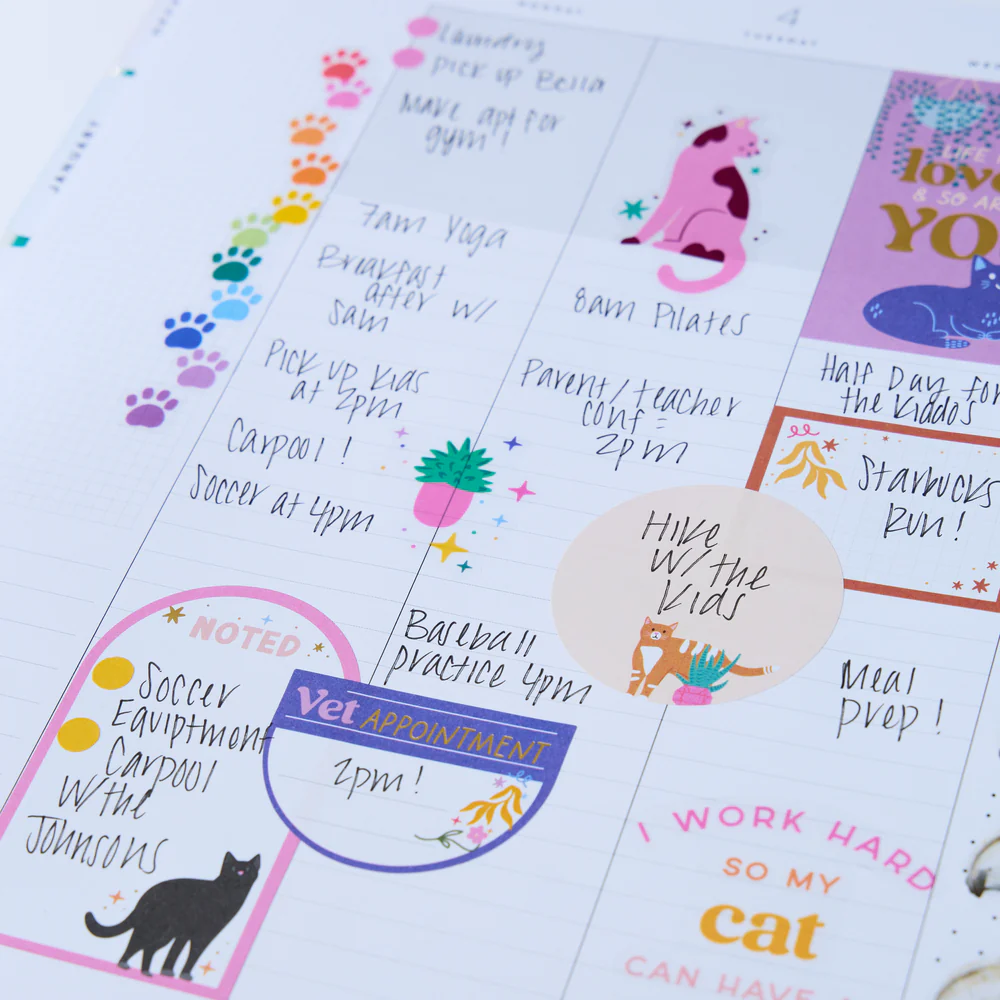 JANUARY
4
TUESDAY
Laundry
Pick up Bella
Make apt for
gym!
7am Yoga
Breakfast
after w/
Sam
Pick up kids
at 2pm
Carpool!
Soccer at 4pm
NOTED
Soccer
Equiptment
Carpool
w/the
Johnsons
8am Pilates
Parent/teacher
conf =
2pm
Baseball
practice 4pm
Vet APPOINTMENT
2pm!
LIFE
love
& SO AR
YO
Half Day for
the kiddos
Starbucks
Run!
Hike
w/ the
kids
Meal
prep!
I WORK HARD
SO MY
cat
CAN HAVE